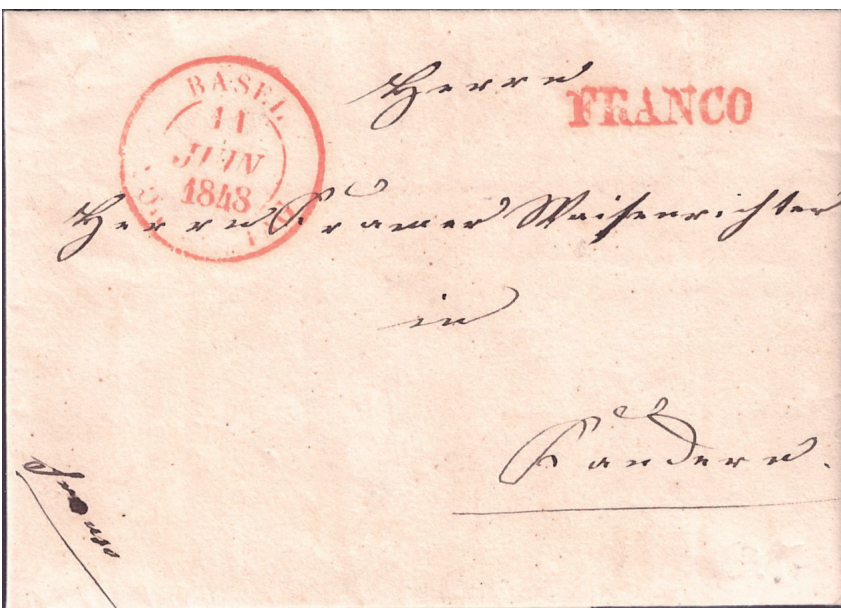 BASEL
11
JUIN
1848
Herrn
FRANCO
Herrn Kramer Waisenrichter
in
Kandern.
Franco